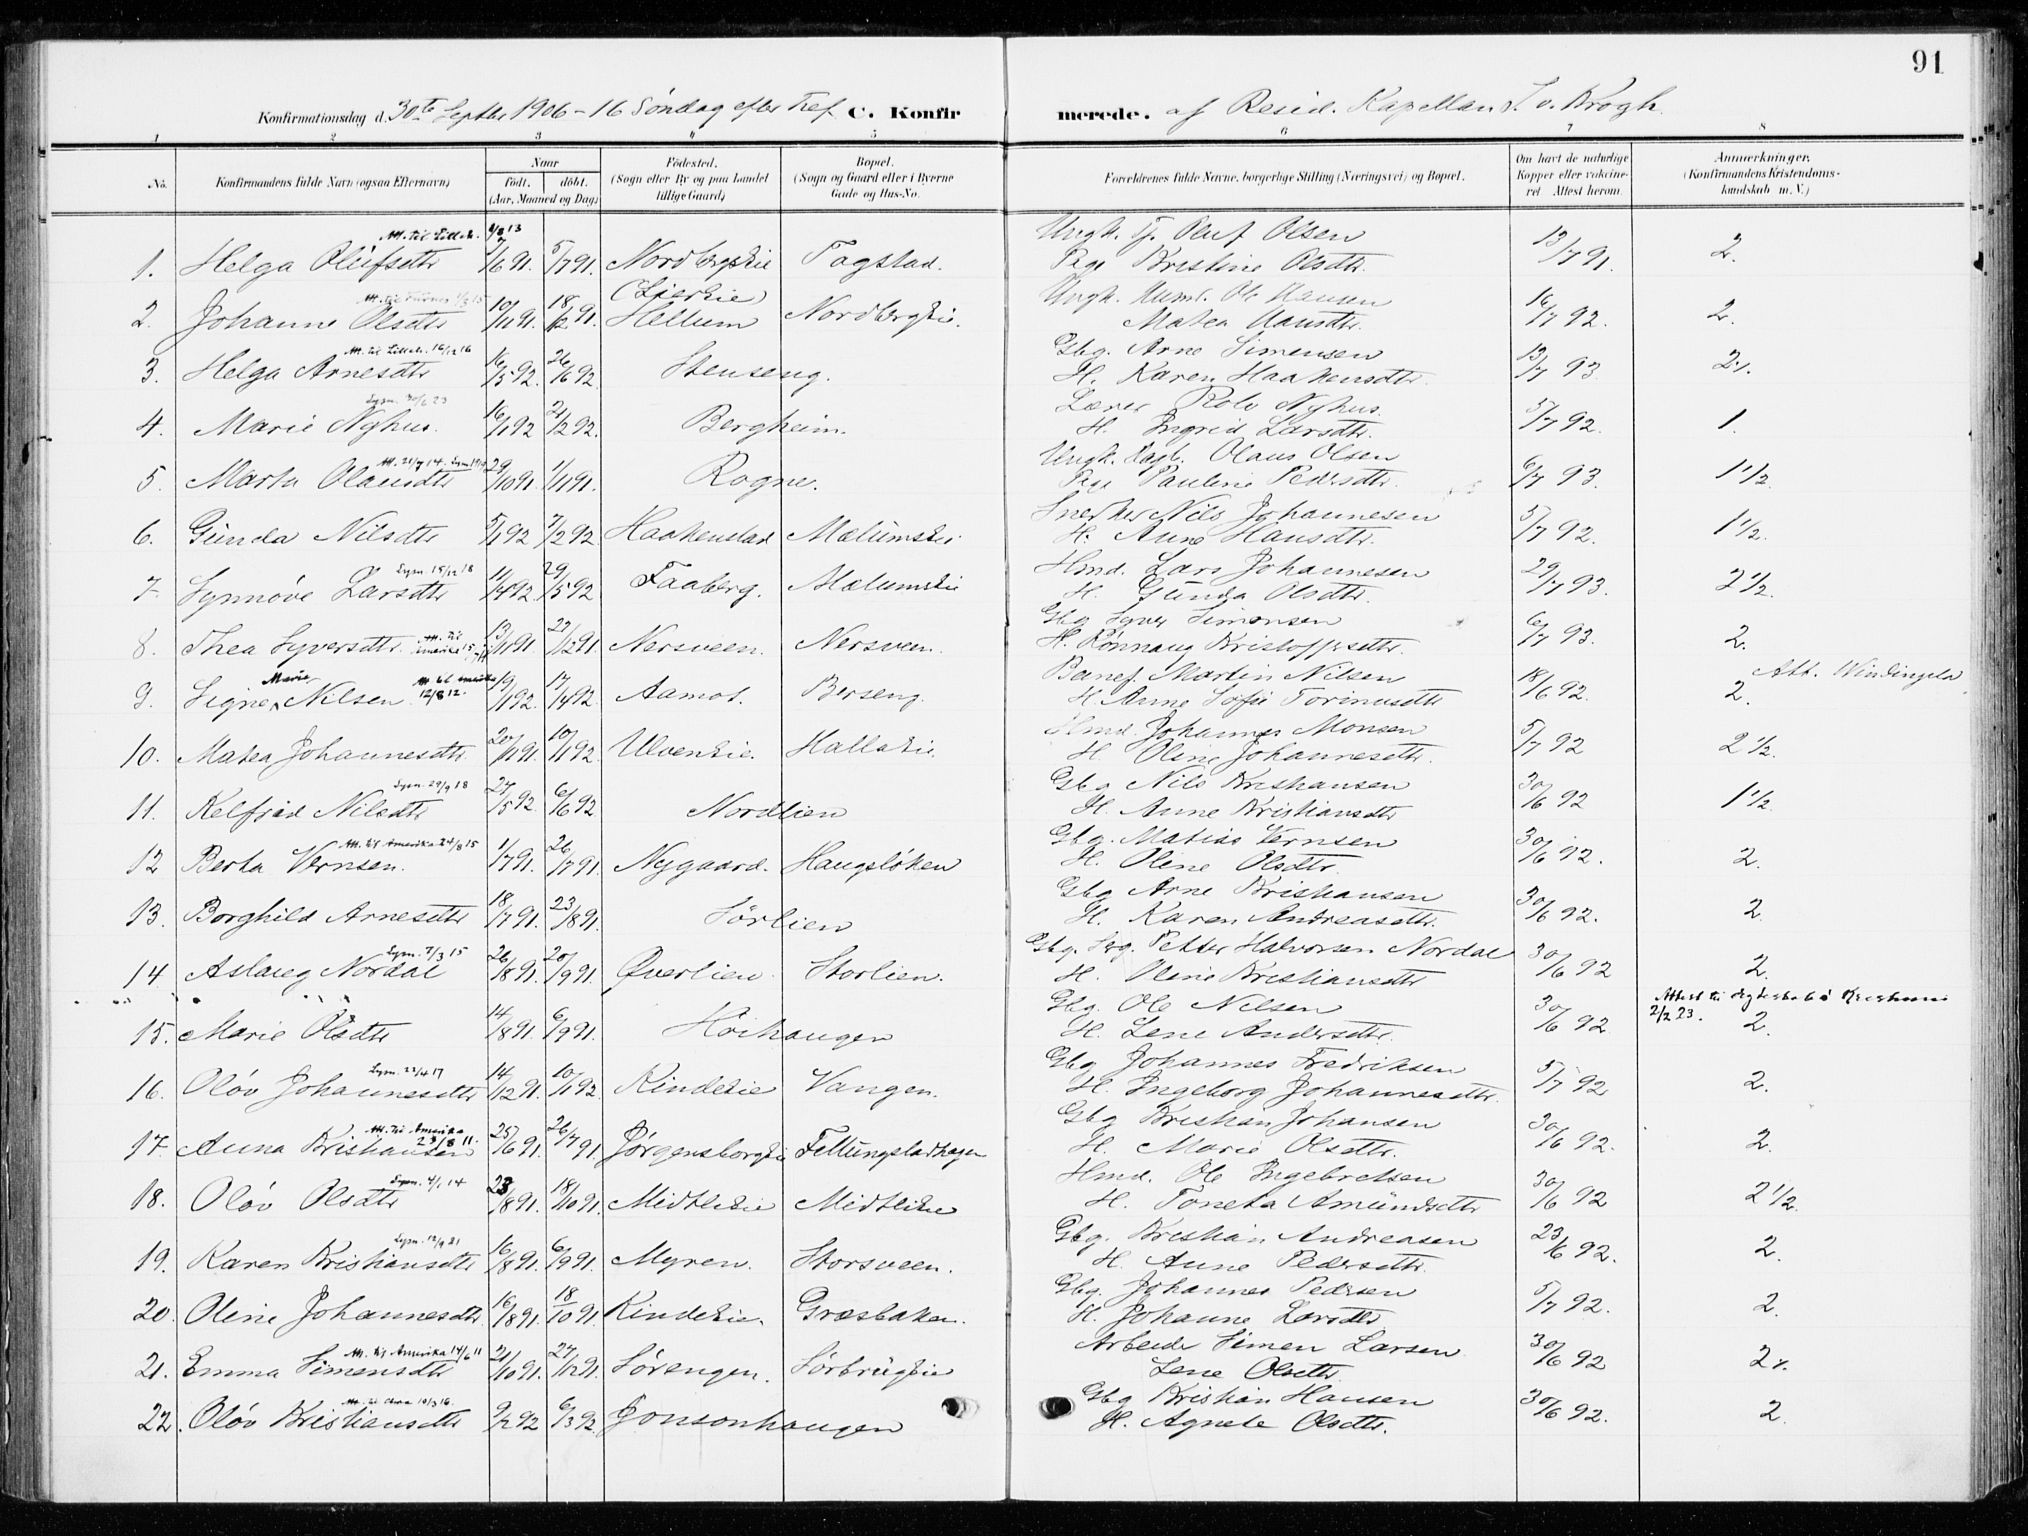 91
Konfirmationsdag d. 30te Septbr 1906 – 16 Söndag efter Tref. C. Konfirmerede. af Resid. Kapellan v. Krogh.
1 2 3 4 5 6 7 8
No. Konfirmandens fulde Navn (ogsaa Efternavn) Naar födt. döbt. (Aar, Maaned og Dag) Födested. (Sogn eller By og paa Landet tillige Gaard) Bopæl. (Sogn og Gaard eller i Byerne Gade og Hus-No. Forældrenes fulde Navne, borgerlige Stilling (Næringsvei) og Bopæl. Om havt de naturlige Kopper eller vakcineret Attest herom. Anmærkninger. (Konfirmandens Kristendomskundskab m. V.)
Att. til Litleh. 8/8 13 Ungk. Tj. Oluf Olsen
1. Helga Olufsdtr 7/6 91. 5/7 91. Nordbergseie Fagstad. Pige Kristine Olsdtr. 13/7 91. 2.
Att. til Furnes 1/3 15 (Lierseie) Ungk. Ole Hansen
2. Johanne Olsdtr 10/11 91. 18/12 91. Hellum Nordbergseie. Matea Hansdtr. 16/7 92. 2.
Att. til Litleh. 16/12 16 Gbg. Arne Simensen
3. Helga Arnesdtr 16/5 92. 26/6 92 Stenseng. H. Karen Haakensdtr. 13/7 93. 2.
Lysn. 30/6 23 Lærer Rolv Nyhus.
4. Marie Nyhus. 16/1 92 21/2 92. Bergheim. H. Ingrid Larsdtr. 5/7 92. 1.
Att. 21/7 14. Ungk. Dagb. Olaus Olsen
5. Marta Olausdtr 29/10 91. 1/11 91. Rogne. Pige Pauline Pedersdtr. 6/7 93. 1 1/2.
Snedker Nils Johannesen
6. Gunda Nilsdtr 5/1 92 7/2 92. Haakenstad Mælumseie H. Anne Hansdtr. 5/7 92. 1 1/2.
Lysn. 15/12 18 Hmd. Lars Johannesen
7. Synnöve Larsdtr 11/4 92. 29/5 92 Faaberg. Mælumseie H. Gunda Olsdtr. 29/7 93. 2 1/2.
Gbg Syver Simensen
8. Thea Syversdtr. Att. til Amerika 13/11 91. 27/12 91. Nersveen. Nersveen. H. Rönnaug Kristoffersdtr. 6/7 93. 2.
Marie Att. til Amerika 12/8 12. Banef. Martin Nilsen Att. Vindingstad
9. Signe Nilsen 19/1 92. 17/4 92 Aamot. Berseng. H Anne Sofie Torinusdtr 18/6 92. 2.
Hmd. Johannes Monsen
10. Matea Johannesdtr. 20/11 91. 10/1 92 Ulvenseie. Hallseie. H. Oline Johannesdtr. 5/7 92 2 1/2.
Lysn. 29/9 18 Gbg Nils Kristiansen
11. Kelfrid Nilsdtr 27/5 92. 6/6 92 Nordlien H. Anne Kristiansdtr 30/6 92 1 1/2.
Att. til Amerika 24/8 15 Gbg. Matias Vernsen
12 Berta Vernsen. 1/7 91. 26/7 91. Nygaard. Haugslöken H. Oline Olsdtr. 30/6 92. 2.
Gbg Arne Kristiansen
13. Borghild Arnesdtr 18/7 91. 23/8 91. Sörlien H. Karen Andreasdtr. 30/6 92. 2
Lysn. 7/3 15 Gbg. Petter Halvorsen Nordal
14 Aslaug Nordal 26/8 91. 20/9 91. Överlien. Storlien. H. Oline Kristiansdtr 30/6 92 2.
Gbg. Ole Nilsen Attest til Ægteskab i Kristiania
15. Marie Olsdtr 14/8 91. 6/9 91. Höihaugen H. Lene Andersdtr. 30/6 92 2/2 23. 2.
Lysn. 22/4 17 Gbg Johannes Fredriksen
16. Olöv Johannesdtr 14/12 91. 10/1 92. Kindseie Vangen. H. Ingeborg Johannesdtr. 5/7 92 2.
Att. til Amerika 23/8 11. Gbg Kristian Johansen
17. Anna Kristiansen 25/6 91. 26/7 91. Jörgensborgeie Fellungstadhagen H. Marie Olsdtr. 30/6 92. 2.
Lysn. 4/1 14 Hmd. Ole Ingebretsen
18. Olöv Olsdtr 23/8 91. 18/10 91. Midtlieie Midtlieie H. Toneta Amundsdtr 30/6 92 2 1/2.
Lysn. 12/9 21 Gbg. Kristian Andreasen
19. Karen Kristiansdtr 16/8 91. 6/9 91. Myren. Storsveen. H. Anne Pedersdtr. 23/6 92. 2.
Gbg. Johannes Pedersen
20. Oline Johannesdtr. 16/8 91. 18/10 91. Kindseie. Græsbaken. H. Johanne Larsdtr 5/7 92. 2.
Att. til Amerika 14/6 11 Arbeider Simen Larsen
21. Emma Simensdtr 21/10 91. 27/12 91. Sörengen. Sörbrugseie Lene Olsdtr. 30/6 92 2.
10/3 16. Gbg Kristian Hansen
22. Olöv Kristiansdtr 9/2 92 6/3 92. Jonsonhaugen H. Agnete Olsdtr. 30/6 92. 2